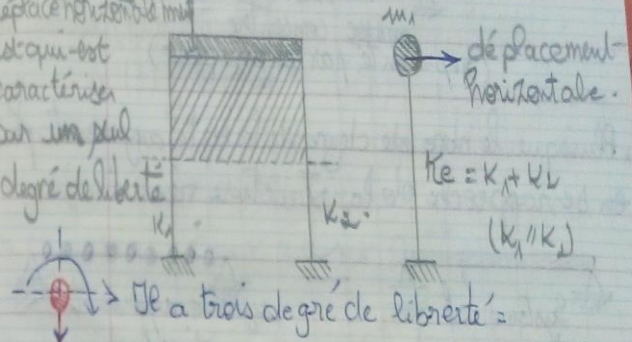 déplace horizontale
et qui est
caractériser
par un seul
degré de liberté
m1
déplacement
horizontale.
Ke = K1 + K2
(K1 // K2)
K1
K2.
> Il a trois degré de liberté =